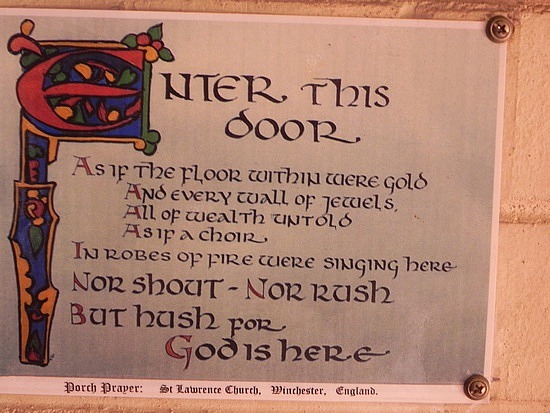 Enter this
door
As if the floor within were gold
And every wall of jewels,
All of wealth untold
As if a choir
In robes of fire were singing here
Nor shout - Nor rush
But hush for
God is here
Porch Prayer: St Lawrence Church, Winchester, England.